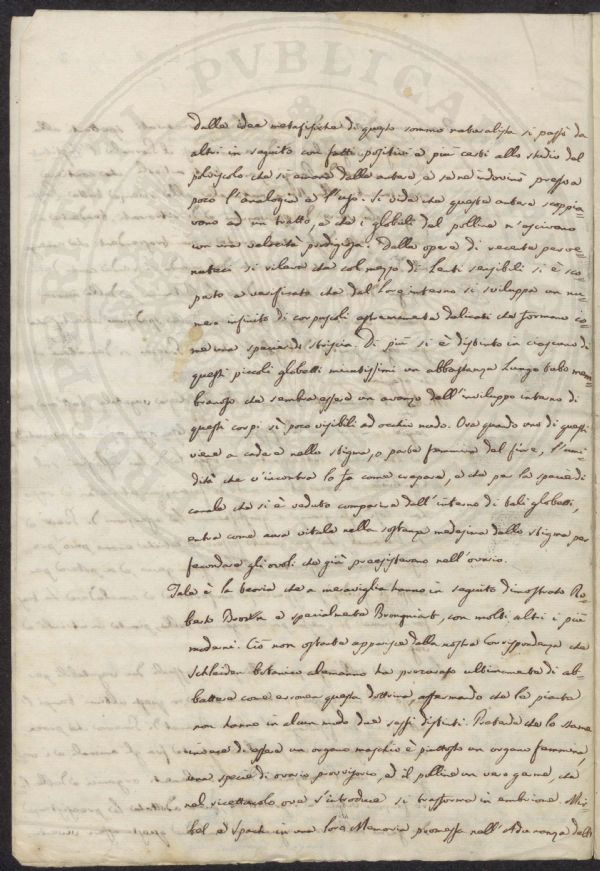 dalle idee metafisiche di questo sommo naturalista si passò da
altri in seguito con fatti positivi e più certi allo studio del
polviscolo che si emana dalle antere, e se ne indovinò presso a
poco l'analogia e l'uso. Si vide che queste antere scoppia-
vono ad un tratto, e che i globuli del polline n'escivano
con una velocità prodigiosa. Dalle opere di recente perve-
nuteci si rileva che col mezzo di Lenti sensibili si è sco-
perto e verificato che dal loro interno si sviluppa un nu-
mero infinito di corpuscoli estremamente delicati che formano co-
me una specie di striscia. Di più si è distinto in ciascuno di
questi piccoli globetti minutissimi un abbastanza lungo tubo mem-
branoso che sembra essere un avanzo dell'inviluppo interno di
questi corpi sì poco visibili ad occhio nudo. Ora quando uno di questi
viene a cadere nello stigma, o parte feminea del fiore, l'umi-
dità che v'incontra lo fa come crepare, e che per la specie di
canale che si è veduto comparire dall'interno di tali globetti,
entra come aura vitale nella sostanza medesima dello stigma per
fecondare gli ovoli che già preesistevano nell'ovario.
Tale è la teoria che a meraviglia hanno in seguito dimostrato Ro-
berto Brown e specialmente Brongniart, con molti altri i più
moderni. Ciò non ostante apparisce dalla nostra Corrispondenza che
Schleiden botanico alemanno ha procurato ultimamente di ab-
battere come erronea questa dottrina, affermando che le piante
non hanno in alcun modo due sessi distinti. Pretende che lo stame
invece di essere un organo maschio è piuttosto un organo femmineo,
una specie di ovario provvisorio, ed il polline un vero germe, che
nel ricettacolo ove s'introduce si trasforma in embrione. Mir-
bel e Spach in una loro Memoria promessa nell'Adunanza delli